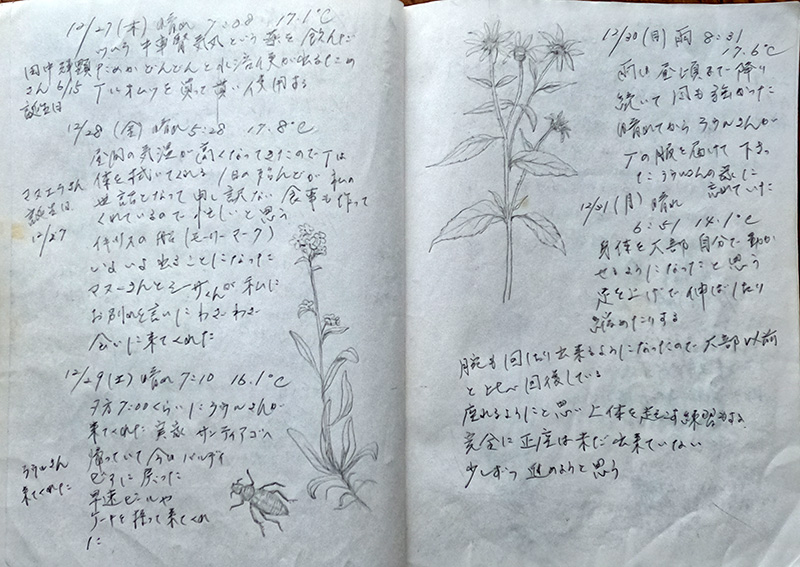 12/27(木) 晴れ 7:08 17.1℃
という薬を飲んだ
ためかどんどんと水溶便が出るため
Tにオムツを買って貰い使用する
田中
さん 6/15
誕生日
12/28 (金) 晴れ 5:28 17.8℃
昼間の気温が高くなってきたのでTは
体を拭いてくれる 1日の殆んどが私の
世話となって申し訳ない 食事も作って
くれているので忙しいと思う
イギリスの船(モーリーマーク)
いよいよ出ることになった
マヌーさんとシーザくんが私に
お別れを言いにわざわざ
会いに来てくれた
誕生日
12/27
12/29(土) 晴れ 7:10 16.1℃
夕方7:00くらいにラウルさんが
来てくれた 実家 サンティアゴへ
帰っていて今日バルディ
ビアに戻った
早速ビールや
ケーキを持って来てくれ
た
ラウルさん
来てくれた
12/30(月) 雨 8:31
17.6℃
雨は昼頃まで降り
続いて風も強かった
晴れてからラウルさんが
Tの服を届けて下さっ
た ラウルさんの家に
忘れていた
12/31(月) 晴れ
6:51 14.1℃
身体を大部自分で動か
せるようになったと思う
足を上げて伸ばしたり
縮めたりする
腕も回したり出来るようになったので大部以前
と比べ回復している
座れるようにと思い上体を起こす練習もする
完全に正座は未だ出来ていない
少しずつ進めようと思う